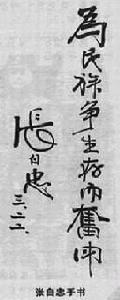 為民族争生存而奮鬥
張自忠
三.二二.
张自忠手书